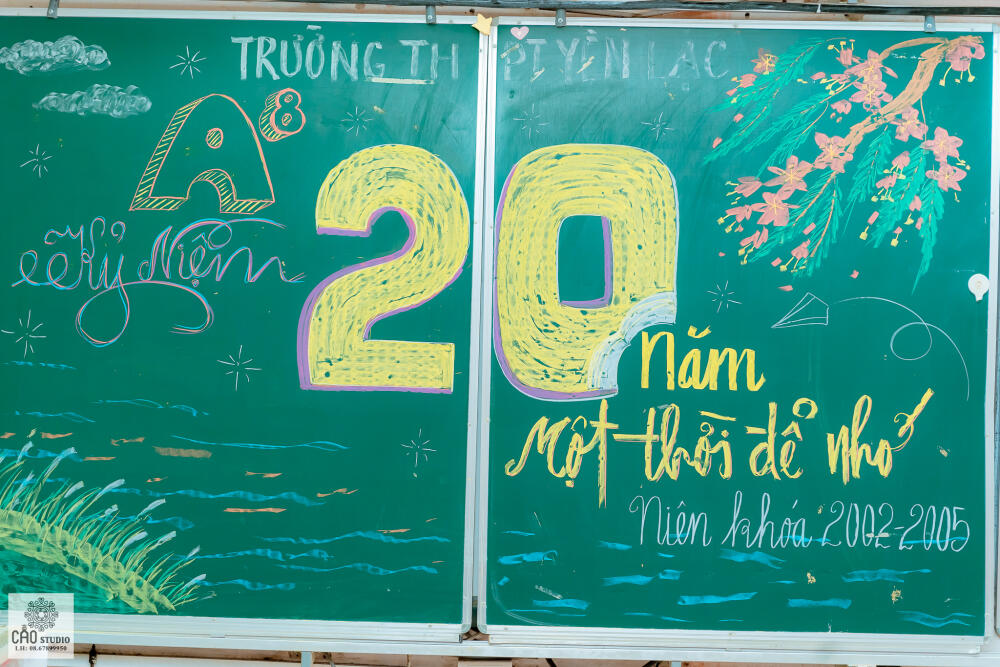 TRƯỜNG THPT YÊN LẠC
A8
Kỷ Niệm
20
Năm
Một thời để nhớ
Niên khóa 2002-2005
CẢO STUDIO
LH: 08.67899950